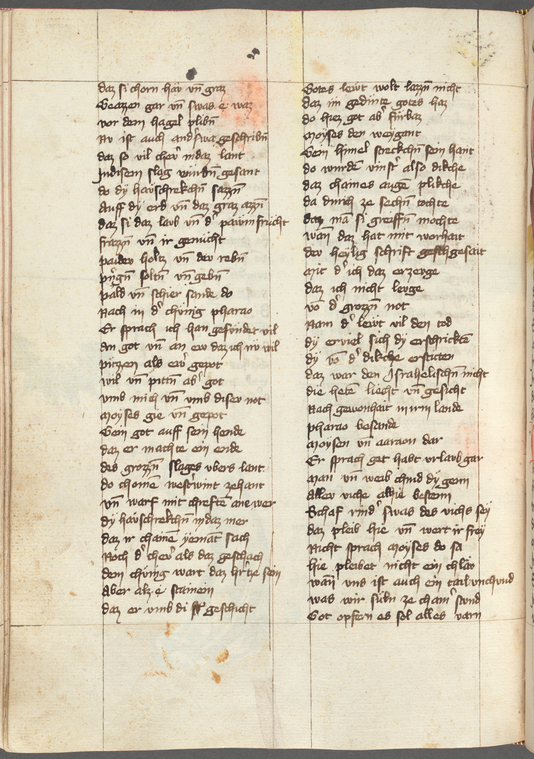 daz si chorn haw vn̄ graz
Beazzen gar vn̄ swas e waz
vor dem hagel plibn̄
Nv ist auch and'swa geschribn̄
daz so vil chev' in daz lant
In disem slag wurdn̄ gesant
do dy hawschrekchn̄ sazzn̄
Auff dy erd vn̄ daz graz azzn̄
daz si daz laub vn̄ d' pawm frucht
frazzn̄ vn̄ ir genucht
paider holtz vn̄ der rebn̄
vn̄ gebn̄
pald vn̄ schier sande do
Nach in d' chünig pharao
Er sprach ich han gesündet vil
An got vn̄ an ew daz ich nv wil
püezzen als ewr gepot
wil vn̄ pittn̄ ab' got
vmb mich vn̄ vmb diser not
Moyses gie vn̄ gepot
Gein got auff sein hende
daz er machte ein ende
des grozzn̄ slages vbers lant
do chome westwint zehant
vn̄ warf mit chreften ane wer
dy hawschrekchn̄ in daz mer
daz ir chaine yemāt sach
Noch d' chev' als daz geschach
dem chünig wart daz hertze sein
Aber alz e stainein
daz er vmb di geschicht
Gotes lewt wolt lazzn̄ nicht
daz im gedinte gotes haz
do hiez got ab fürbaz
Moyses den weygant
Gein himel strekchn̄ sein hant
do wurdē vinst' also dikche
daz chaines auge plikche
da durch ze sechn̄ tochte
daz mā si greiffn̄ mochte
wan̄ daz hat mit warhait
der heylig schrift geseit
Mit d' ich daz erzewge
daz ich nicht lewge
vō d' grozzn̄ not
Nam d' lewt vil den tod
dy erviel sich dy erschrickten
dy vō d' dikche ersticten
daz war den Israhelischn̄ nicht
die hetē liecht vn̄ gesicht
Nach gewonhait in irm lande
pharao besande
Moysen vn̄ aaron dar
Er sprach get habt vrlaub gar
Man vn̄ weib chind dy gein
Allez viche alhie bestein
Schaf rind swas des vichs sey
daz pleib hie vn̄ wert ir frey
Nicht sprach Moyses do sa
hie pleibet nicht ein chla
wan̄ vns ist auch ein tail vnchund
was wir süln ze chain' stund
Got opfern es sol alles varn